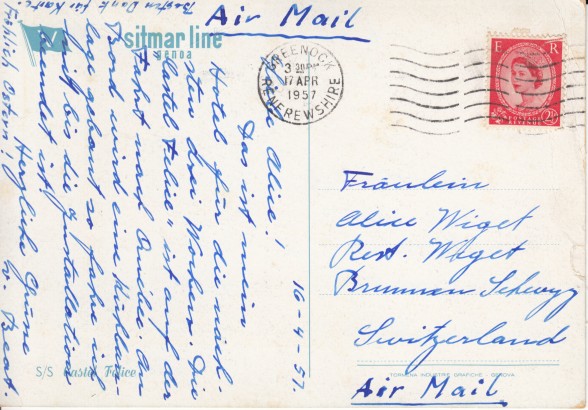 Air Mail
sitmar line
genoa
GREENOCK
3 30 PM
17 APR
1957
RENFREWSHIRE
E R
2½
Besten Dank für Karte.
16-4-57.
Alice!
Das ist mein
Hotel für die näch-
sten drei Wochen. Die
"Castel Felice" ist auf der
Fahrt nach Québec. An
Bord wird eine
lage gebaut so fahre ich
mit bis die Installation
beendet ist.
Herzliche Grüsse
W. Beat
Fröhlich Ostern!
Fräulein
Alice Wiget
Rest. Wiget
Brunnen Schwyz
Switzerland
Air Mail
S/S Castel Felice
TORINENA INDUSTRIE GRAFICHE - GENOVA